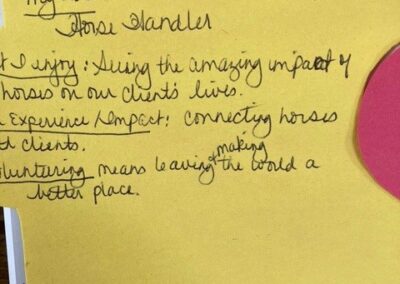 Horse Handler
t I enjoy: Seeing the amazing impact of
horses on our client's lives.
Experience / Impact: connecting horses
clients.
olunteering means leaving + making the world a
better place.